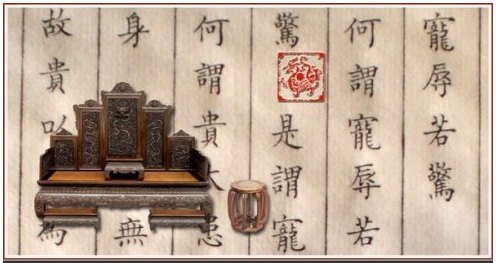 寵辱若驚
何謂寵辱若
驚是謂寵
何謂貴大患
身無
故貴以為